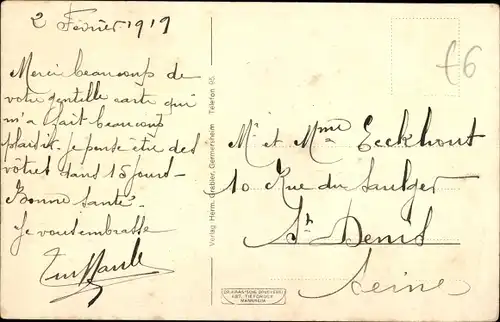 2 Fevrier 1919
Merci beaucoup de
votre gentille carte qui
m'a fait beaucoup
plaisir. je pense être des
vôtres dans 15 jours.
Bonne santé.
Je vous embrasse
Verlag Herm. Gräßler, Germersheim Telefon 95.
f6
Mr et Mme Eeckhout
10 Rue du Saulger
St Denis
Seine
MANNHEIM